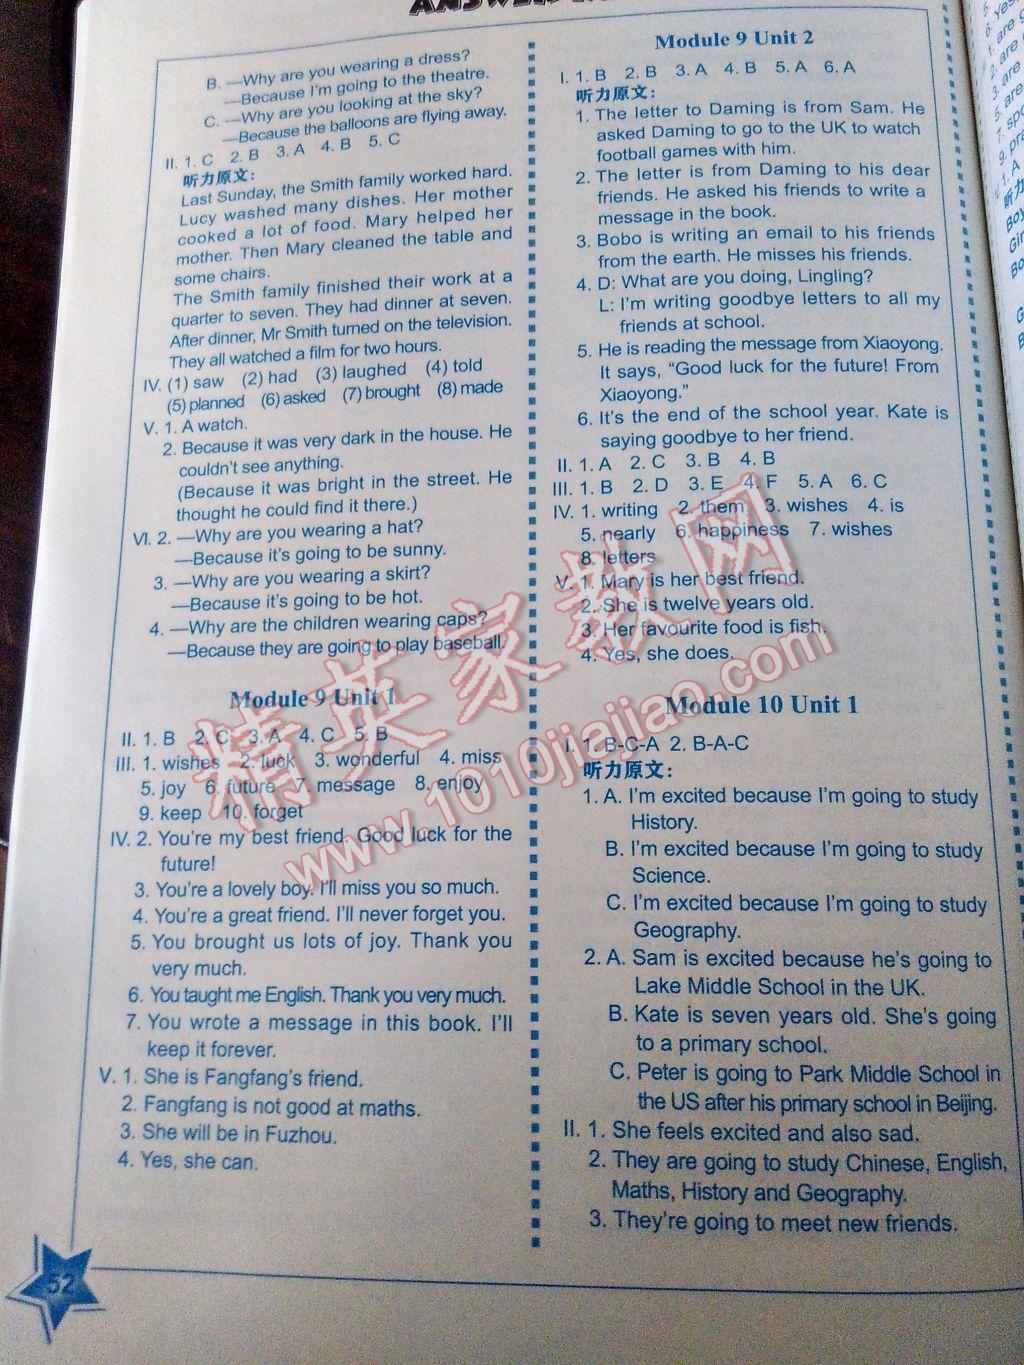 B. —Why are you wearing a dress?
—Because I'm going to the theatre.
C. —Why are you looking at the sky?
—Because the balloons are flying away.
II. 1. C 2. B 3. A 4. B 5. C
听力原文：
Last Sunday, the Smith family worked hard.
Lucy washed many dishes. Her mother
cooked a lot of food. Mary helped her
mother. Then Mary cleaned the table and
some chairs.
The Smith family finished their work at a
quarter to seven. They had dinner at seven.
After dinner, Mr Smith turned on the television.
They all watched a film for two hours.
IV. (1) saw (2) had (3) laughed (4) told
(5) planned (6) asked (7) brought (8) made
V. 1. A watch.
2. Because it was very dark in the house. He
couldn't see anything.
(Because it was bright in the street. He
thought he could find it there.)
VI. 2. —Why are you wearing a hat?
—Because it's going to be sunny.
3. —Why are you wearing a skirt?
—Because it's going to be hot.
4. —Why are the children wearing caps?
—Because they are going to play baseball.
Module 9 Unit 1
II. 1. B 2. C 3. A 4. C 5. B
III. 1. wishes 2. luck 3. wonderful 4. miss
5. joy 6. future 7. message 8. enjoy
9. keep 10. forget
IV. 2. You're my best friend. Good luck for the
future!
3. You're a lovely boy. I'll miss you so much.
4. You're a great friend. I'll never forget you.
5. You brought us lots of joy. Thank you
very much.
6. You taught me English. Thank you very much.
7. You wrote a message in this book. I'll
keep it forever.
V. 1. She is Fangfang's friend.
2. Fangfang is not good at maths.
3. She will be in Fuzhou.
4. Yes, she can.
52
Module 9 Unit 2
I. 1. B 2. B 3. A 4. B 5. A 6. A
听力原文：
1. The letter to Daming is from Sam. He
asked Daming to go to the UK to watch
football games with him.
2. The letter is from Daming to his dear
friends. He asked his friends to write a
message in the book.
3. Bobo is writing an email to his friends
from the earth. He misses his friends.
4. D: What are you doing, Lingling?
L: I'm writing goodbye letters to all my
friends at school.
5. He is reading the message from Xiaoyong.
It says, “Good luck for the future! From
Xiaoyong.”
6. It's the end of the school year. Kate is
saying goodbye to her friend.
II. 1. A 2. C 3. B 4. B
III. 1. B 2. D 3. E 4. F 5. A 6. C
IV. 1. writing 2. them 3. wishes 4. is
5. nearly 6. happiness 7. wishes
8. letters
V. 1. Mary is her best friend.
2. She is twelve years old.
3. Her favourite food is fish.
4. Yes, she does.
Module 10 Unit 1
I. 1. B-C-A 2. B-A-C
听力原文：
1. A. I'm excited because I'm going to study
History.
B. I'm excited because I'm going to study
Science.
C. I'm excited because I'm going to study
Geography.
2. A. Sam is excited because he's going to
Lake Middle School in the UK.
B. Kate is seven years old. She's going
to a primary school.
C. Peter is going to Park Middle School in
the US after his primary school in Beijing.
II. 1. She feels excited and also sad.
2. They are going to study Chinese, English,
Maths, History and Geography.
3. They're going to meet new friends.
精英家教网
www.1010jiajiao.com